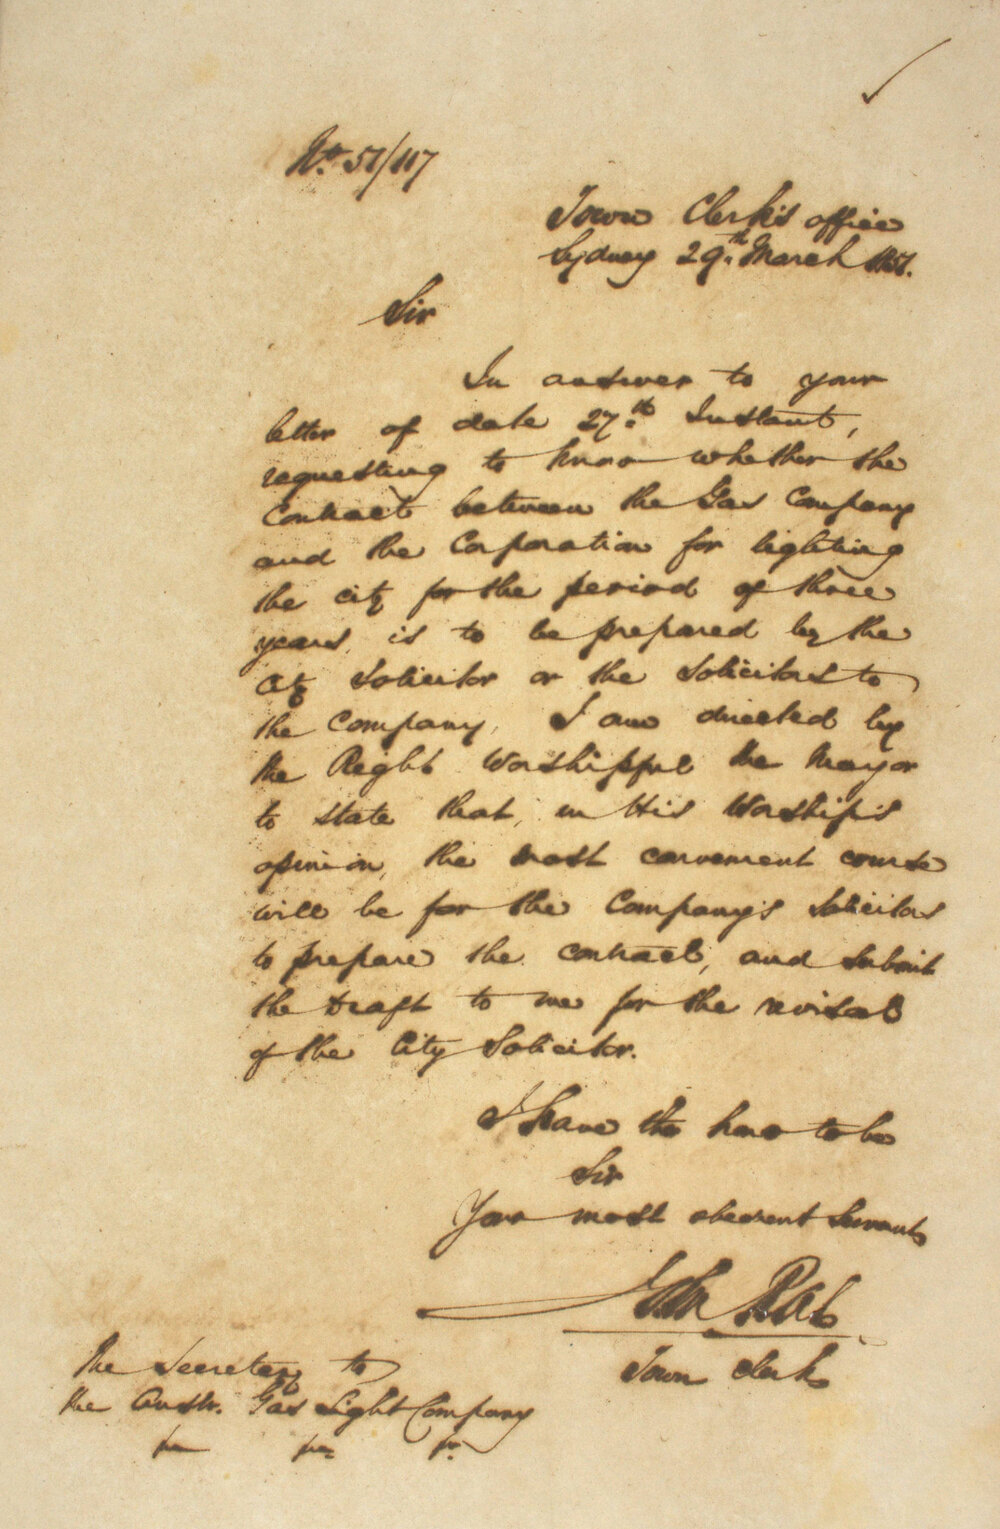 No. 51/117
Town Clerk's office
Sydney 29th March 1851.
Sir
In answer to your
letter of date 27th Instant,
requesting to know whether the
Contract between the Gas Company
and the Corporation for lighting
the city for the period of three
years, is to be prepared by the
City Solicitor or the Solicitors to
the Company, I am directed by
the Right Worshipful the Mayor
to state that, in His Worship's
opinion, the most convenient course
will be for the Company's Solicitors
to prepare the contract, and submit
the draft to me for the revisal
of the City Solicitor.
I have the honor to be
Sir
Your most obedient Servant
John Rae
Town Clerk
The Secretary to
the Austr. Gas Light Company